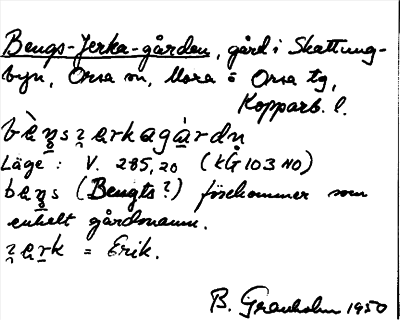 Bengs-Jerka-gården, gård i Skattung-
byn, Orsa sn, Mora o Orsa tg,
Kopparb. l.
bèŋsȝarkagàrdn
Läge : V. 285,20 (KG 103 NO)
beŋs (Bengts?) förekommer som
enkelt gårdsnamn.
ȝark = Erik.
B. Granholm 1950